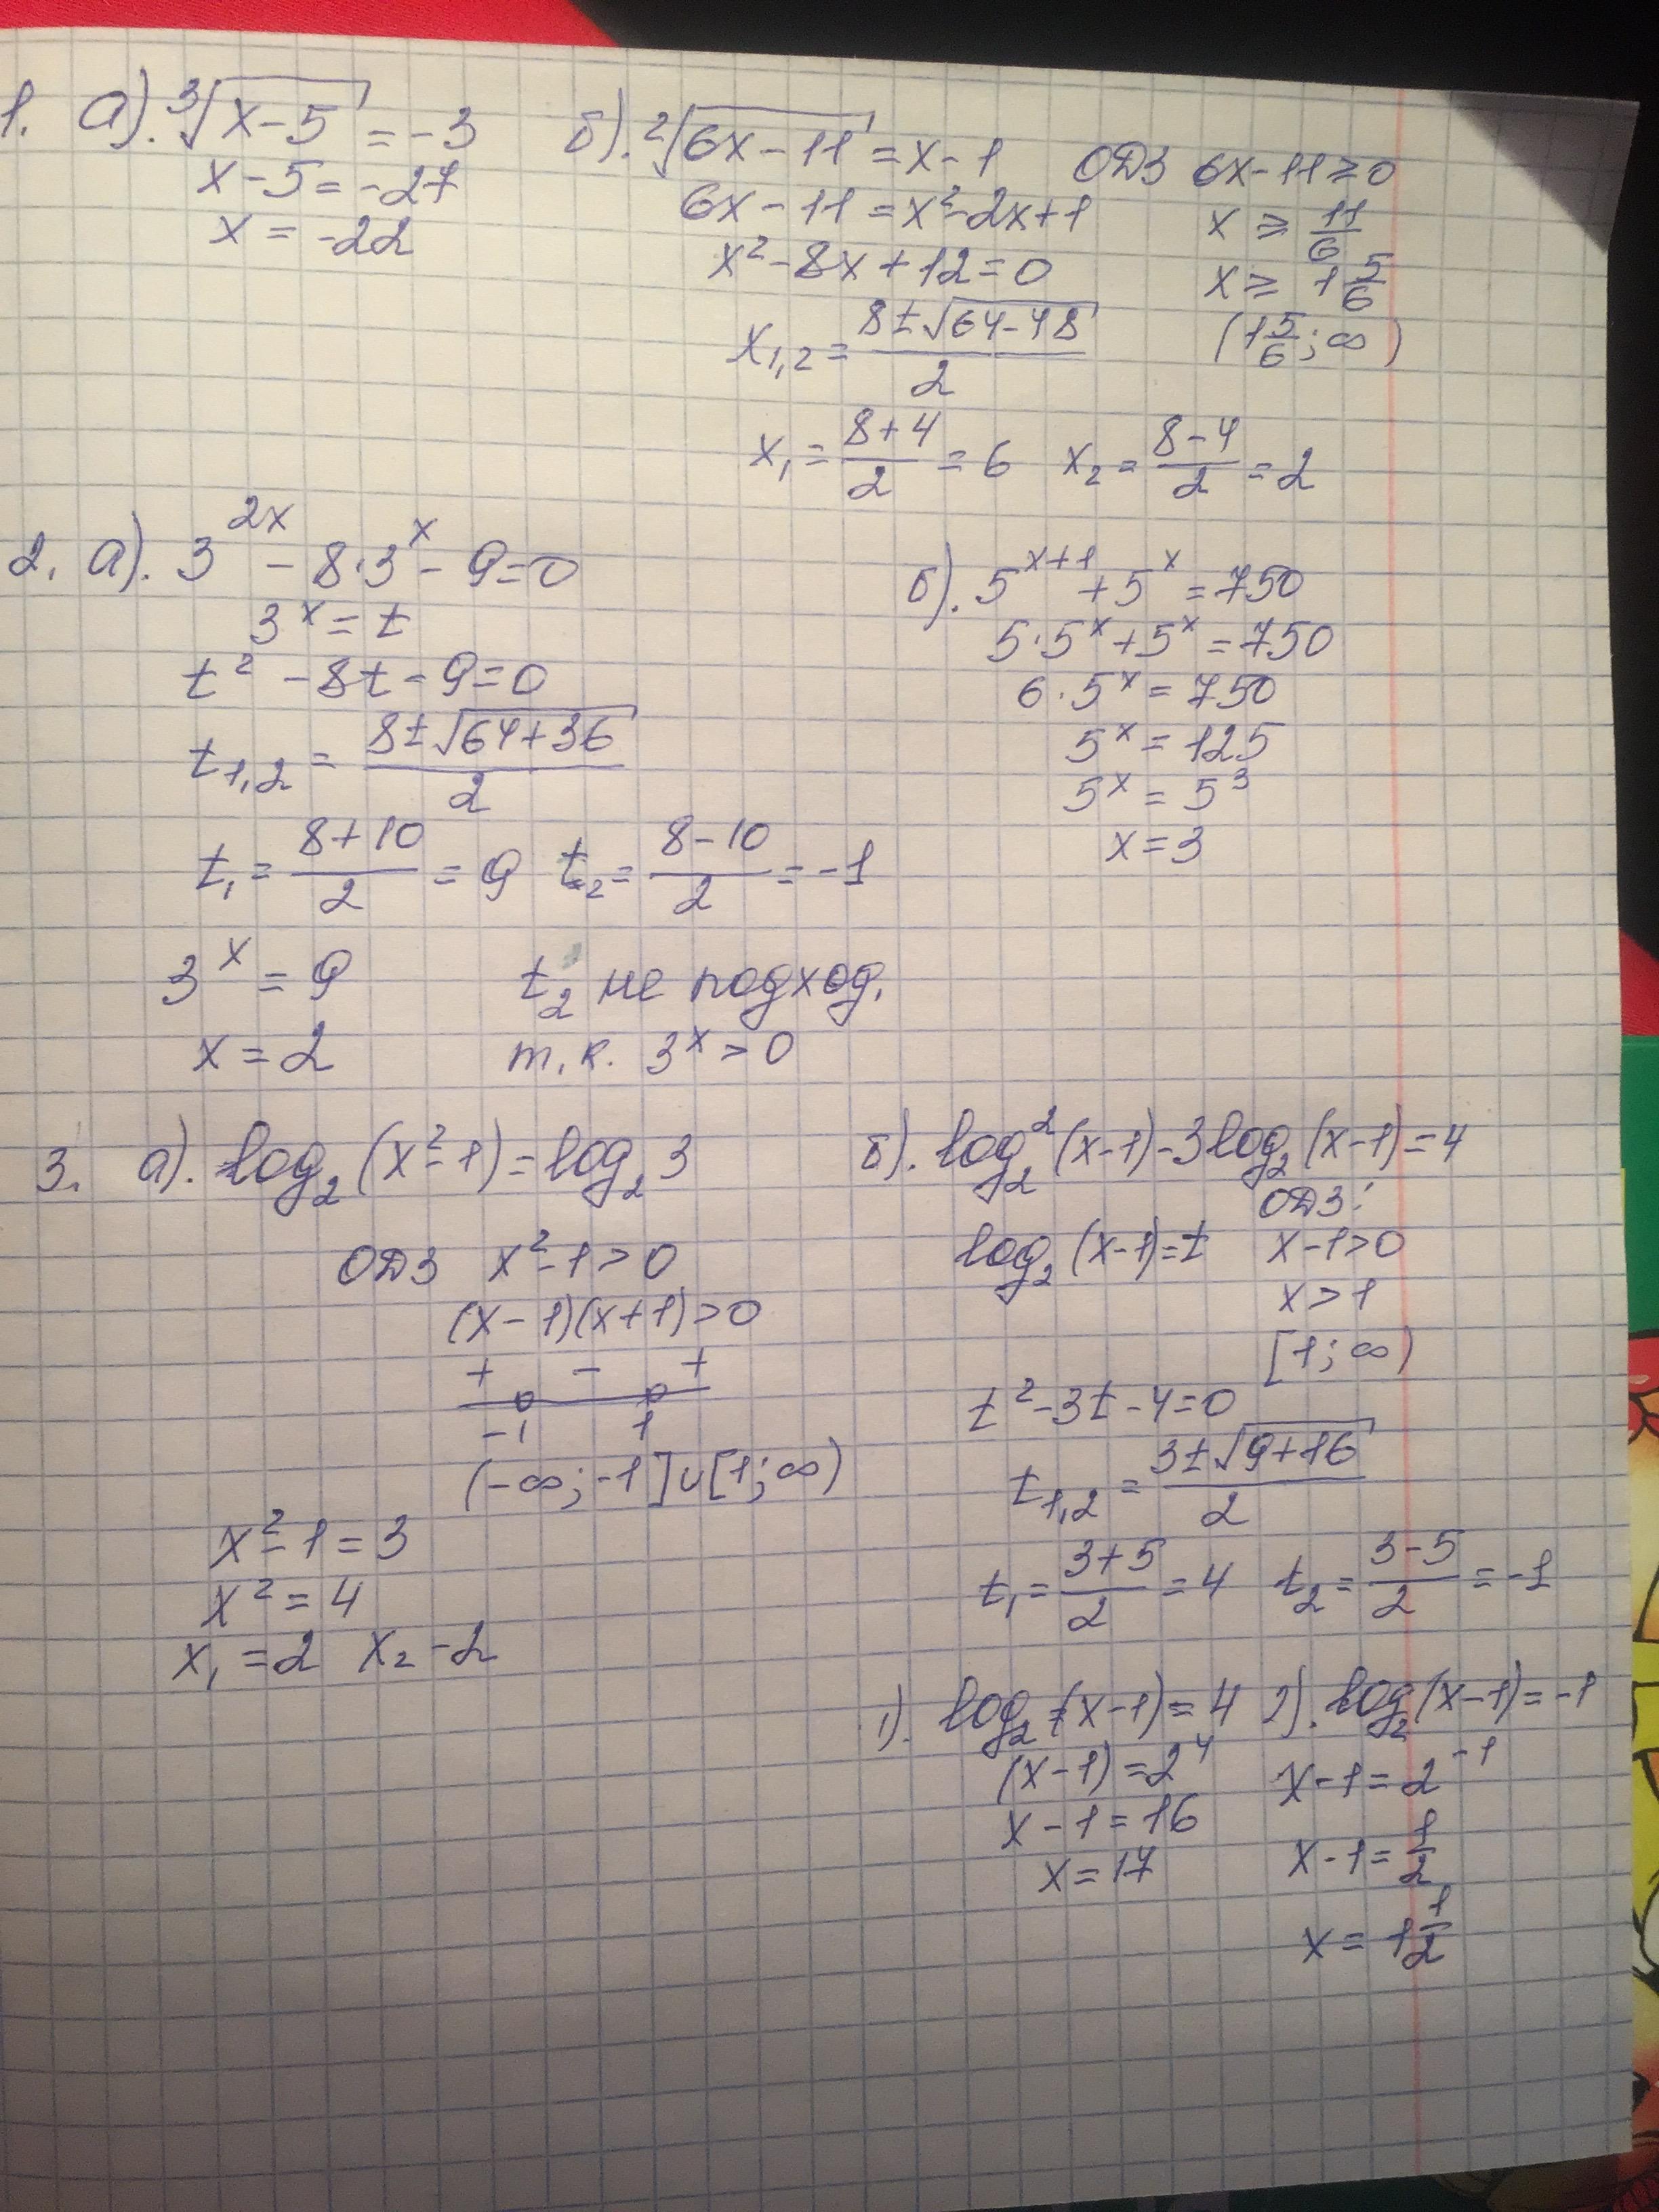 1. а). ³√(x-5) = -3
x-5 = -27
x = -22
б). ²√(6x-11) = x-1
6x-11 = x²-2x+1
x²-8x+12=0
x₁,₂ = (8±√(64-48))/2
x₁ = (8+4)/2 = 6 x₂ = (8-4)/2 = 2
ОДЗ 6x-11≥0
x ≥ 11/6
x ≥ 1 5/6
(1 5/6; ∞)
2. а). 3^(2x) - 8·3^x - 9=0
3^x = t
t² -8t-9=0
t₁,₂ = (8±√(64+36))/2
t₁ = (8+10)/2 = 9 t₂ = (8-10)/2 = -1
3^x = 9
x = 2
t₂ не подход,
т.к. 3^x > 0
б). 5^(x+1) + 5^x = 750
5·5^x + 5^x = 750
6·5^x = 750
5^x = 125
5^x = 5³
x = 3
3. а). log₂(x²-1) = log₂ 3
ОДЗ x²-1>0
(x-1)(x+1)>0
+ - +
-1 1
(-∞; -1]∪[1; ∞)
x²-1 = 3
x² = 4
x₁ = 2 x₂ -2
б). log₂²(x-1)-3log₂(x-1)=4
ОДЗ:
log₂(x-1)=t x-1>0
x>1
[1; ∞)
t²-3t-4=0
t₁,₂ = (3±√(9+16))/2
t₁ = (3+5)/2 = 4 t₂ = (3-5)/2 = -1
1). log₂(x-1) = 4
(x-1) = 2⁴
x-1 = 16
x = 17
2). log₂(x-1) = -1
x-1 = 2⁻¹
x-1 = 1/2
x = 1 1/2